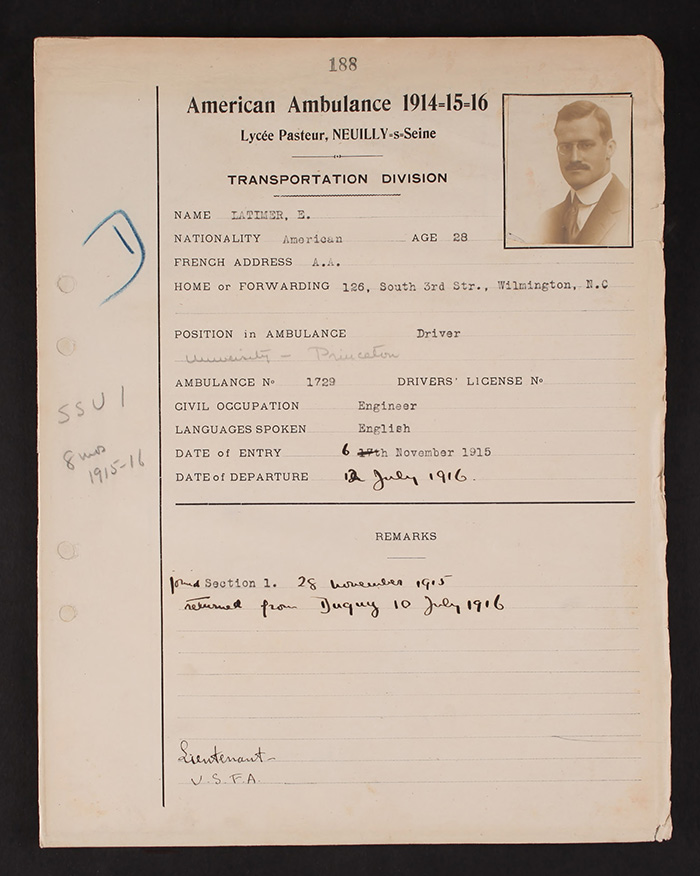 188
American Ambulance 1914=15=16
Lycée Pasteur, NEUILLY=s=Seine
TRANSPORTATION DIVISION
NAME LATIMER, E.
NATIONALITY American AGE 28
FRENCH ADDRESS A.A.
HOME or FORWARDING 126, South 3rd Str., Wilmington, N.C
POSITION in AMBULANCE Driver
University - Princeton
AMBULANCE No 1729 DRIVERS' LICENSE No
SSU 1
CIVIL OCCUPATION Engineer
LANGUAGES SPOKEN English
8 mos
1915-16
DATE of ENTRY 6 17th November 1915
DATE of DEPARTURE July 1916.
REMARKS
joined Section 1. 28 November 1915
returned from Dugny 10 July 1916
Lieutenant-
U.S.F.A.